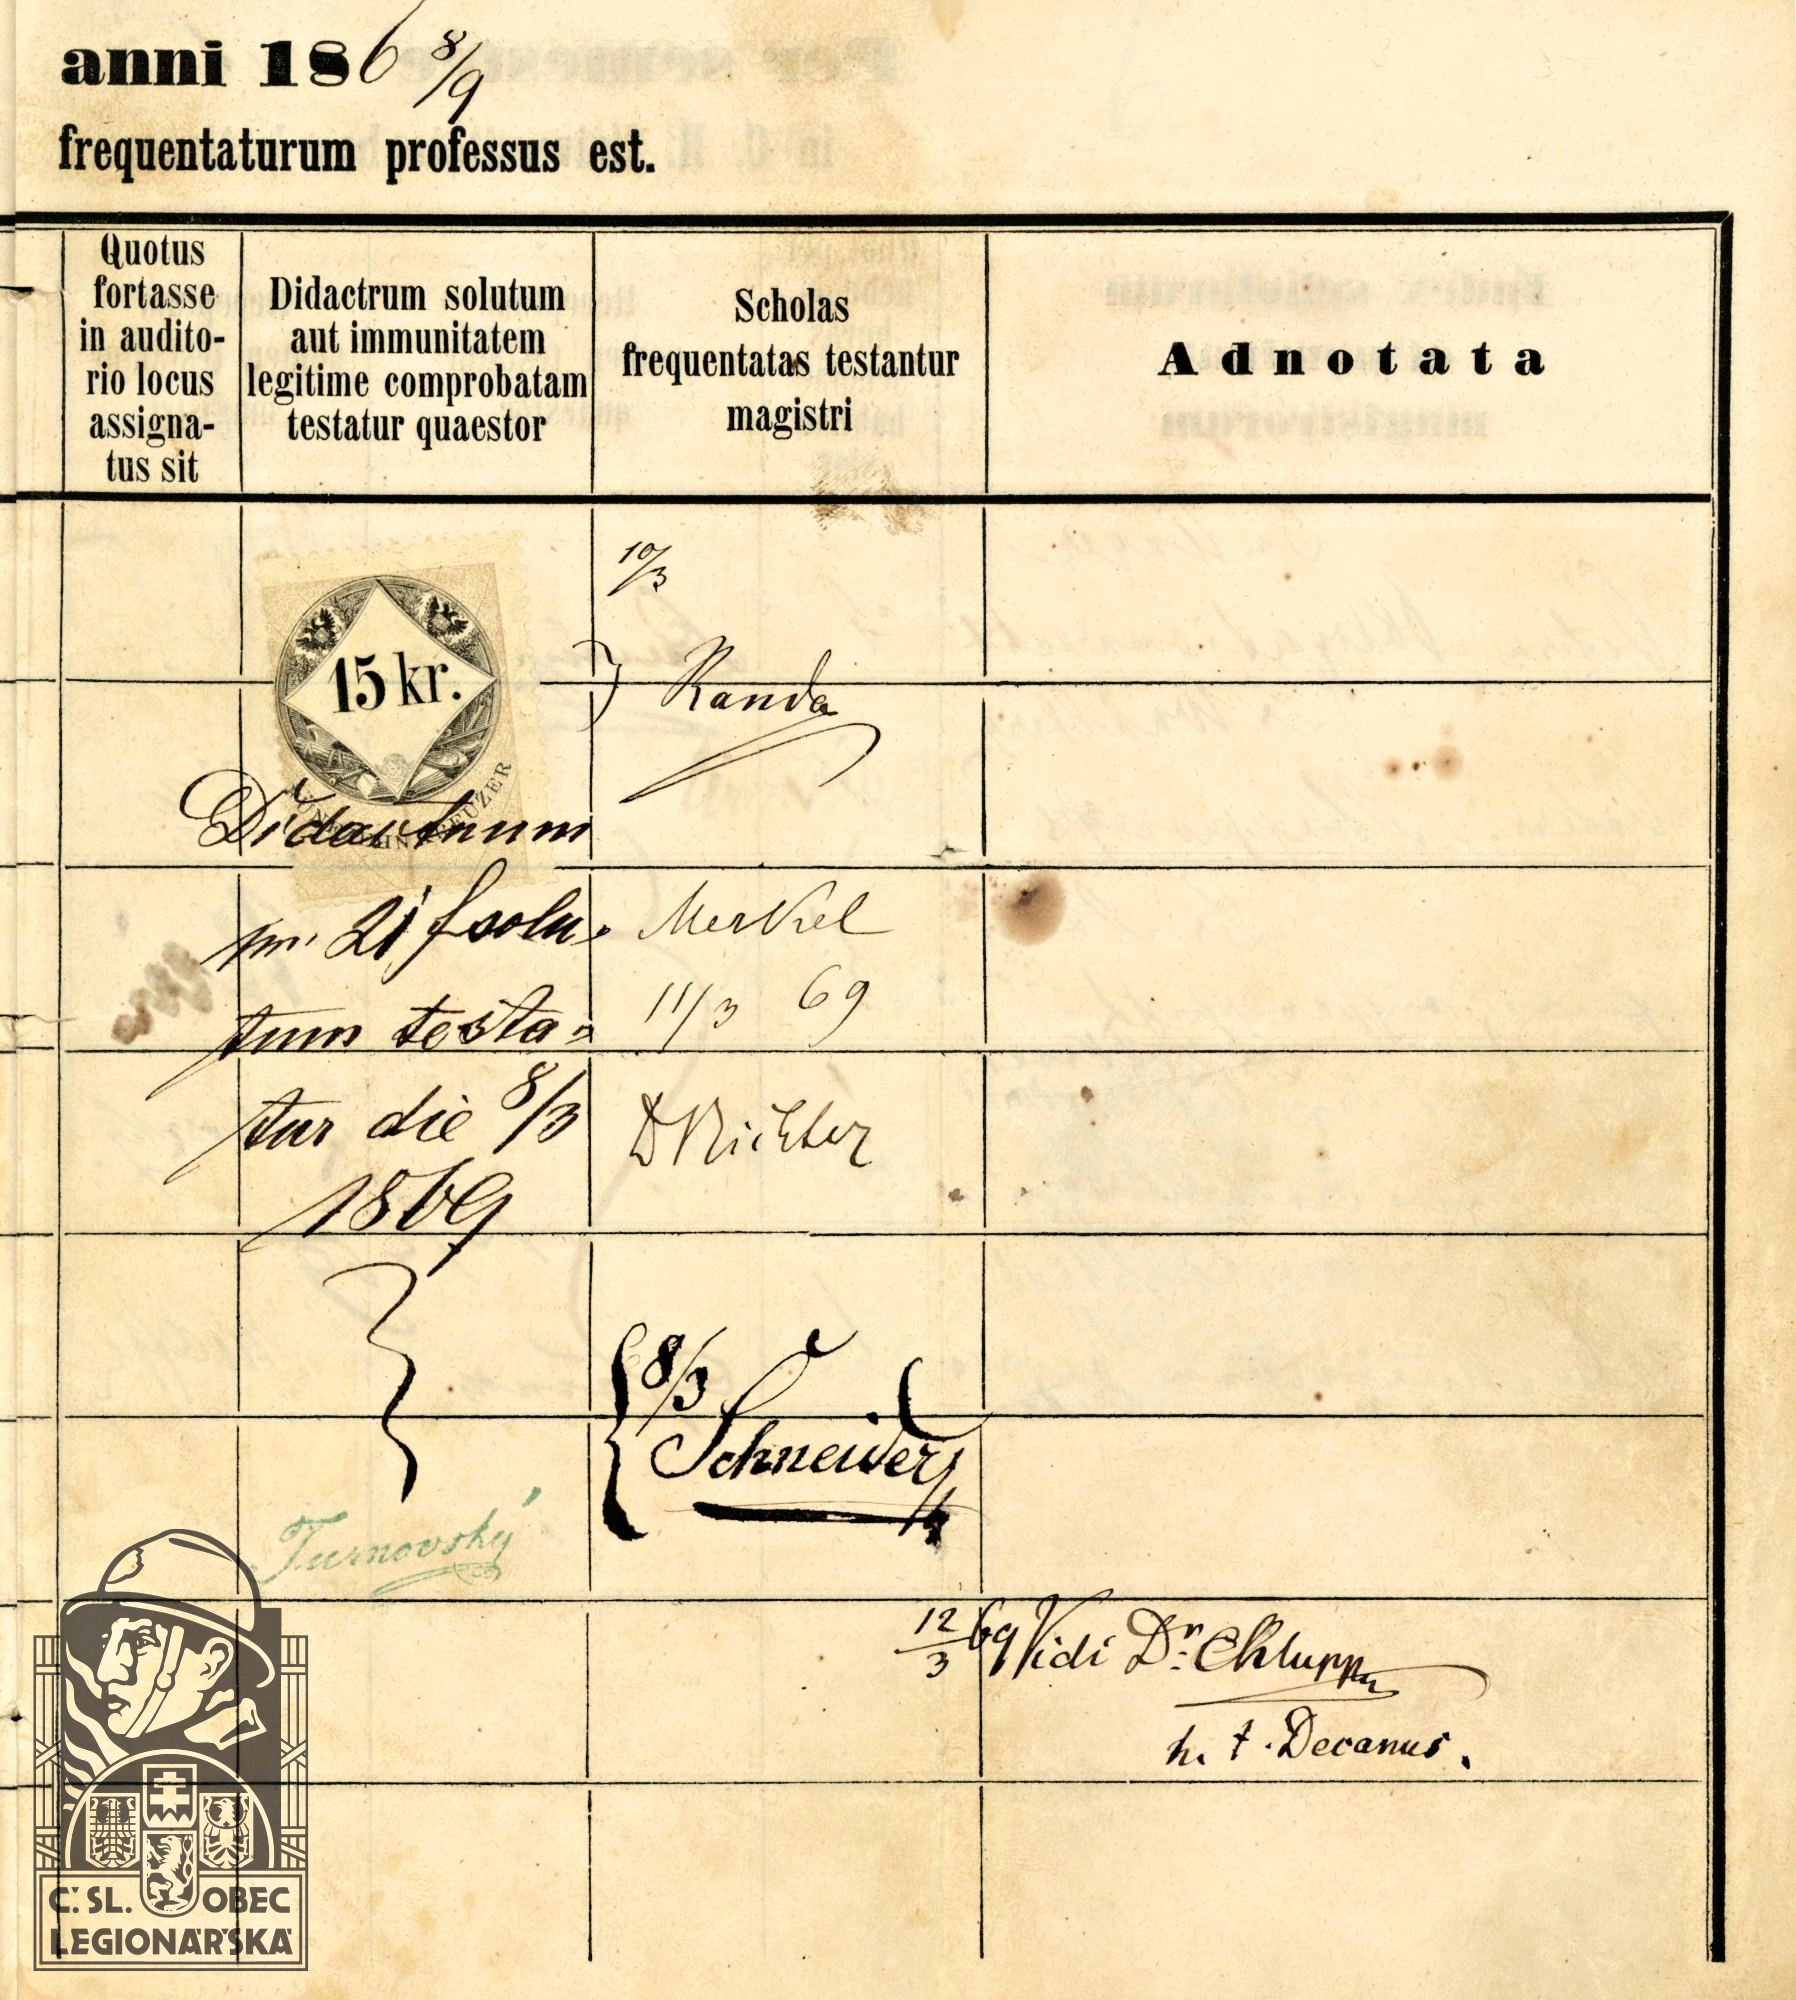 anni 186 8/9
frequentaturum professus est.
Quotus
fortasse
in audito-
rio locus
assigna-
tus sit
Didactrum solutum
aut immunitatem
legitime comprobatam
testatur quaestor
Scholas
frequentatas testantur
magistri
Adnotata
15 kr.
10/3
Randa
Didactrum
pr. 21 f solu-
tum testa-
tur die 8/3
1869
Merkel
11/3 69
D Richter
8/3
Schneider
Turnovský
12/3 69 Vidi Dr. Chlupp
h. t. Decanus.
Č. SL. OBEC
LEGIONÁŘSKÁ